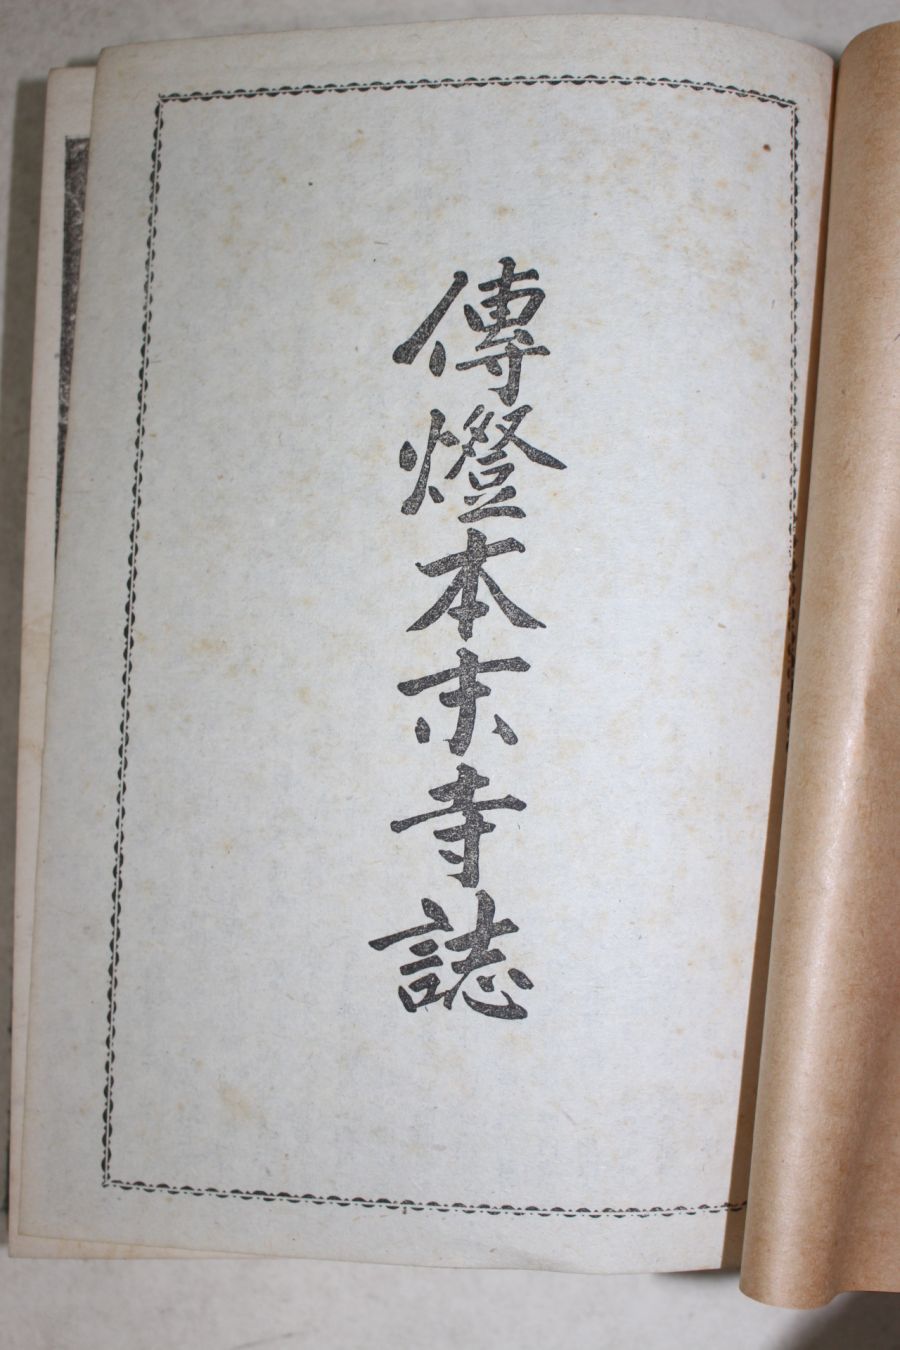 傳燈本末寺誌